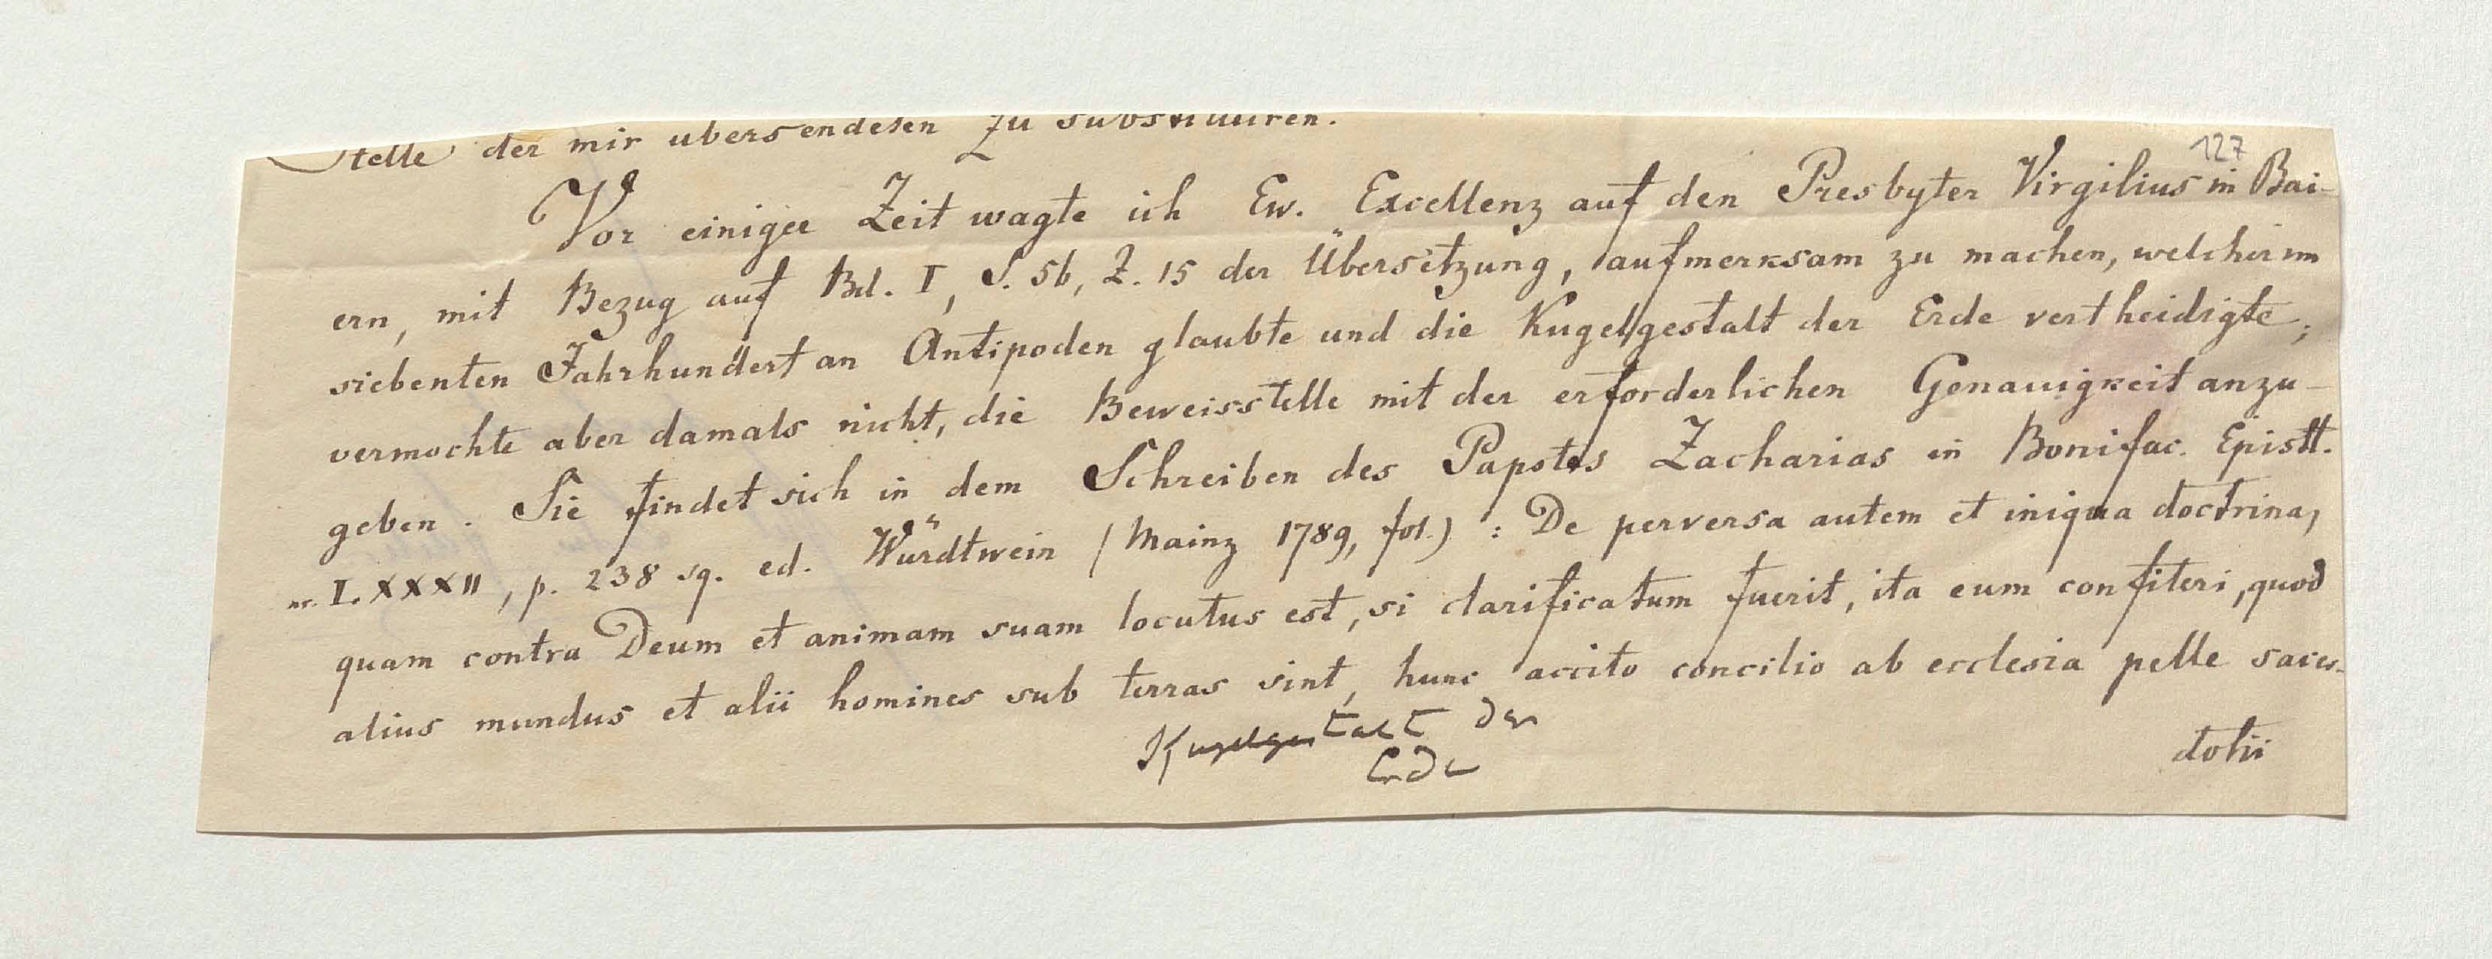 Stelle der mir übersendeten zu substituiren.
127
Vor einiger Zeit wagte ich Ew. Excellenz auf den Presbyter Virgilius in Bai-
ern, mit Bezug auf Bd. I, S. 56, Z. 15 der Übersetzung, aufmerksam zu machen, welcher im
siebenten Jahrhundert an Antipoden glaubte und die Kugelgestalt der Erde vertheidigte;
vermochte aber damals nicht, die Beweisstelle mit der erforderlichen Genauigkeit anzu-
geben. Sie findet sich in dem Schreiben des Papstes Zacharias in Bonifac. Epistt.
nr. LXXXII, p. 238 sq. ed. Würdtwein (Mainz 1789, fol.) : De perversa autem et iniqua doctrina,
quam contra Deum et animam suam locutus est, si clarificatum fuerit, ita eum confiteri, quod
alius mundus et alii homines sub terras sint, hunc accito concilio ab ecclesia pelle sacer-
dotii
Kugelgestalt der
Erde